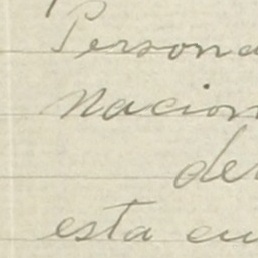 Persona
nacion
del
esta cu